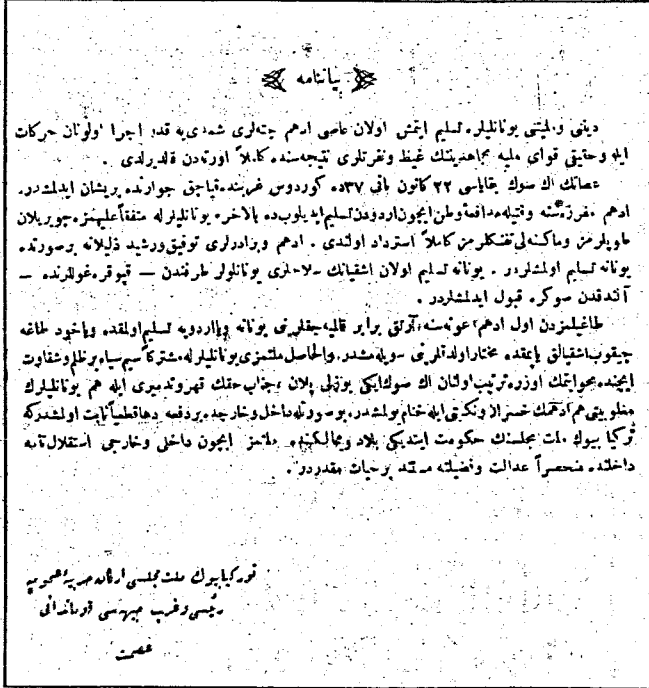 بياننامه
دينى و مليتنى يونانليلره تسليم ايتمش اولان عاصى ادهم چته‌لرى شمدى‌يه قدر اجرا اولونان حركات
ايله و حقيقى قواى مليه مجاهدينك غيظ و نفرتلرى نتيجه‌سنده كاملاً اورته‌دن قالديرلدى .
عصاتك اك صوك بقاياسى ٢٢ كانون ثانى ٣٧ده كوردوس غربنده جوارنده پريشان ايدلمشدر.
ادهم مدافعهٔ وطن ايچون اردودن تسليم ايديلوب ده بالاخره يونانليلر له متفقاً عليهمزه چويريلان
طوپلرمز و ماكنه‌لى تفنكلرمز كاملاً استرداد اولندى . ادهم و برادرلرى توفيق و رشيد ذليلانه برصورتده
يونانه تسليم اولمشلردر . يونانه تسليم اولان اشقيانك سلاحلرى يونانلولر طرفندن — قره‌غوللرنده —
آلندقدن صوكره قبول ايدلمشلردر .
طاغيلمزدن اول ادهم عونه‌سنه آرتق برابر يونانه ويا اردويه تسليم اولمقده وياخود طاغه
چيقوب اشقيالق ياپمقده مختار اولدقلرينى سويله‌مشدر. والحاصل ملتمزى يونانليلرله مشتركاً سيم سياه برظلم و شقاوت
ايچنده اوزره ترتيب اولنان اك صوك ايكى يوزلى پلان ، جناب حقك قهر و تدبيرى ايله هم يونانليلرك
مغلوبيتى هم ادهمك خسران و نكبتى ايله ختام بولمشدر. بو صورتله داخل و خارجده بردفعه دها قطعياً ثابت اولمشدركه
توركيا بيوك ملت مجلسنك حكومت ايتديكى بلاد و ممالكنده ملتمز ايچون داخلى و خارجى استقلال تامه
داخلنده منحصراً عدالت و فضيلته مستند برحيات مقدردر .
توركيا بيوك ملت مجلسى اركان حربيهٔ عموميه
رئيسى و غرب جبهه‌سى قوماندانى
عصمت